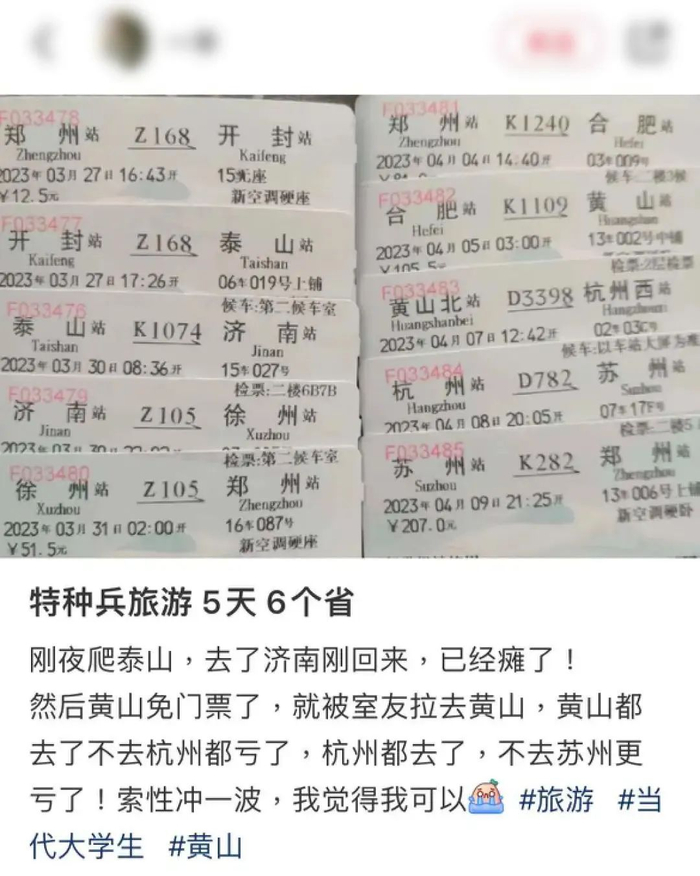 F033478
郑 州站 Z168 开 封站
Zhengzhou Kaifeng
2023年03月27日16:43开 15车无座
¥12.5元 新空调硬座
F033477
开 封站 Z168 泰 山站
Kaifeng Taishan
2023年03月27日17:26开 06车019号上铺
候车:第二候车室
F033476
泰 山站 K1074 济 南站
Taishan Jinan
2023年03月30日08:36开 15车027号
检票:二楼6B7B
F033479
济 南站 Z105 徐 州站
Jinan Xuzhou
检票:第二候车室
F033480
徐 州站 Z105 郑 州站
Xuzhou Zhengzhou
2023年03月31日02:00开 16车087号
¥51.5元 新空调硬座
F033481
郑 州站 K1240 合 肥站
Zhengzhou Hefei
2023年04月04日14:40开 03车009号
F033482
合 肥站 K1109 黄 山站
Hefei Huangshan
2023年04月05日03:00开 13车002号中铺
¥105.5元 检票:2层检票
F033483
黄山北站 D3398 杭州西站
Huangshanbei
2023年04月07日12:42开 02车03C号
候车:以车站大屏为准
F033484
杭 州站 D782 苏 州站
Hangzhou Suzhou
2023年04月08日20:05开 07车17F号
F033485
苏 州站 K282 郑 州站
Suzhou Zhengzhou
2023年04月09日21:25开 13车006号上铺
¥207.0元 新空调硬卧
特种兵旅游 5天 6个省
刚夜爬泰山，去了济南刚回来，已经瘫了！
然后黄山免门票了，就被室友拉去黄山，黄山都
去了不去杭州都亏了，杭州都去了，不去苏州更
亏了！索性冲一波，我觉得我可以 #旅游 #当
代大学生 #黄山